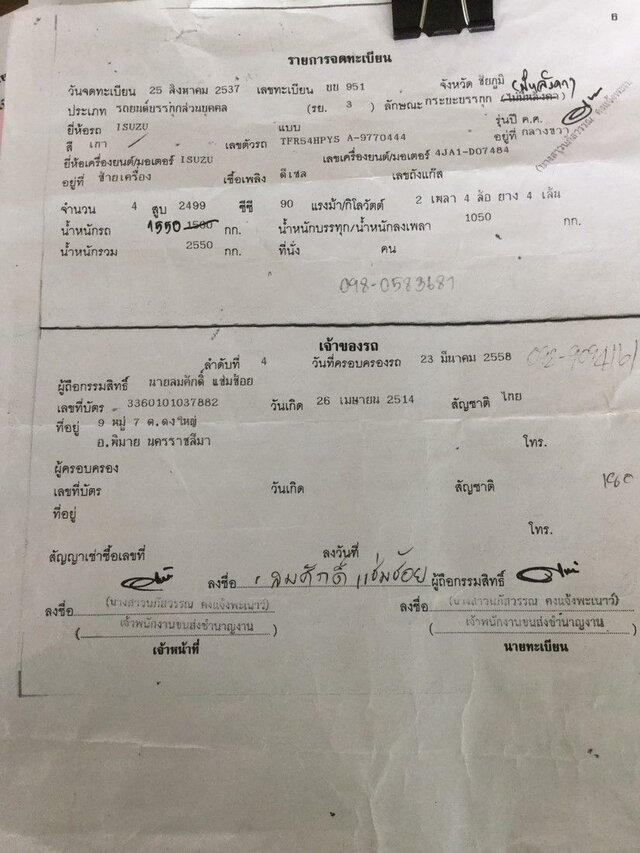 6
รายการจดทะเบียน
วันจดทะเบียน 25 สิงหาคม 2537 เลขทะเบียน บบ 951 จังหวัด ชัยภูมิ
ประเภท รถยนต์บรรทุกส่วนบุคคล (รย. 3 ) ลักษณะ กระบะบรรทุก (ไม่มีหลังคา) (มีหลังคา)
ยี่ห้อรถ ISUZU แบบ รุ่นปี ค.ศ.
สี เทา เลขตัวรถ TFR54HPYS A-9770444 อยู่ที่ กลางขวา
ยี่ห้อเครื่องยนต์/มอเตอร์ ISUZU เลขเครื่องยนต์/มอเตอร์ 4JA1-D07484
อยู่ที่ ซ้ายเครื่อง เชื้อเพลิง ดีเซล เลขถังแก๊ส
จำนวน 4 สูบ 2499 ซีซี 90 แรงม้า/กิโลวัตต์ 2 เพลา 4 ล้อ ยาง 4 เส้น
น้ำหนักรถ 1550 1500 กก. น้ำหนักบรรทุก/น้ำหนักลงเพลา 1050 กก.
น้ำหนักรวม 2550 กก. ที่นั่ง คน
098-0583681
เจ้าของรถ
ลำดับที่ 4 วันที่ครอบครองรถ 23 มีนาคม 2558
ผู้ถือกรรมสิทธิ์ นายสมศักดิ์ แช่มช้อย
เลขที่บัตร 3360101037882 วันเกิด 26 เมษายน 2514 สัญชาติ ไทย
ที่อยู่ 9 หมู่ 7 ต.ดงใหญ่
อ.พิมาย นครราชสีมา โทร.
ผู้ครอบครอง
เลขที่บัตร วันเกิด สัญชาติ 180
ที่อยู่
โทร.
สัญญาเช่าซื้อเลขที่ ลงวันที่
ลงชื่อ สมศักดิ์ แช่มช้อย ผู้ถือกรรมสิทธิ์
ลงชื่อ (นางสาวนภัสวรรณ คงแจ้งพะเนาว์) ลงชื่อ (นางสาวนภัสวรรณ คงแจ้งพะเนาว์)
(เจ้าพนักงานขนส่งชำนาญงาน) (เจ้าพนักงานขนส่งชำนาญงาน)
เจ้าหน้าที่ นายทะเบียน